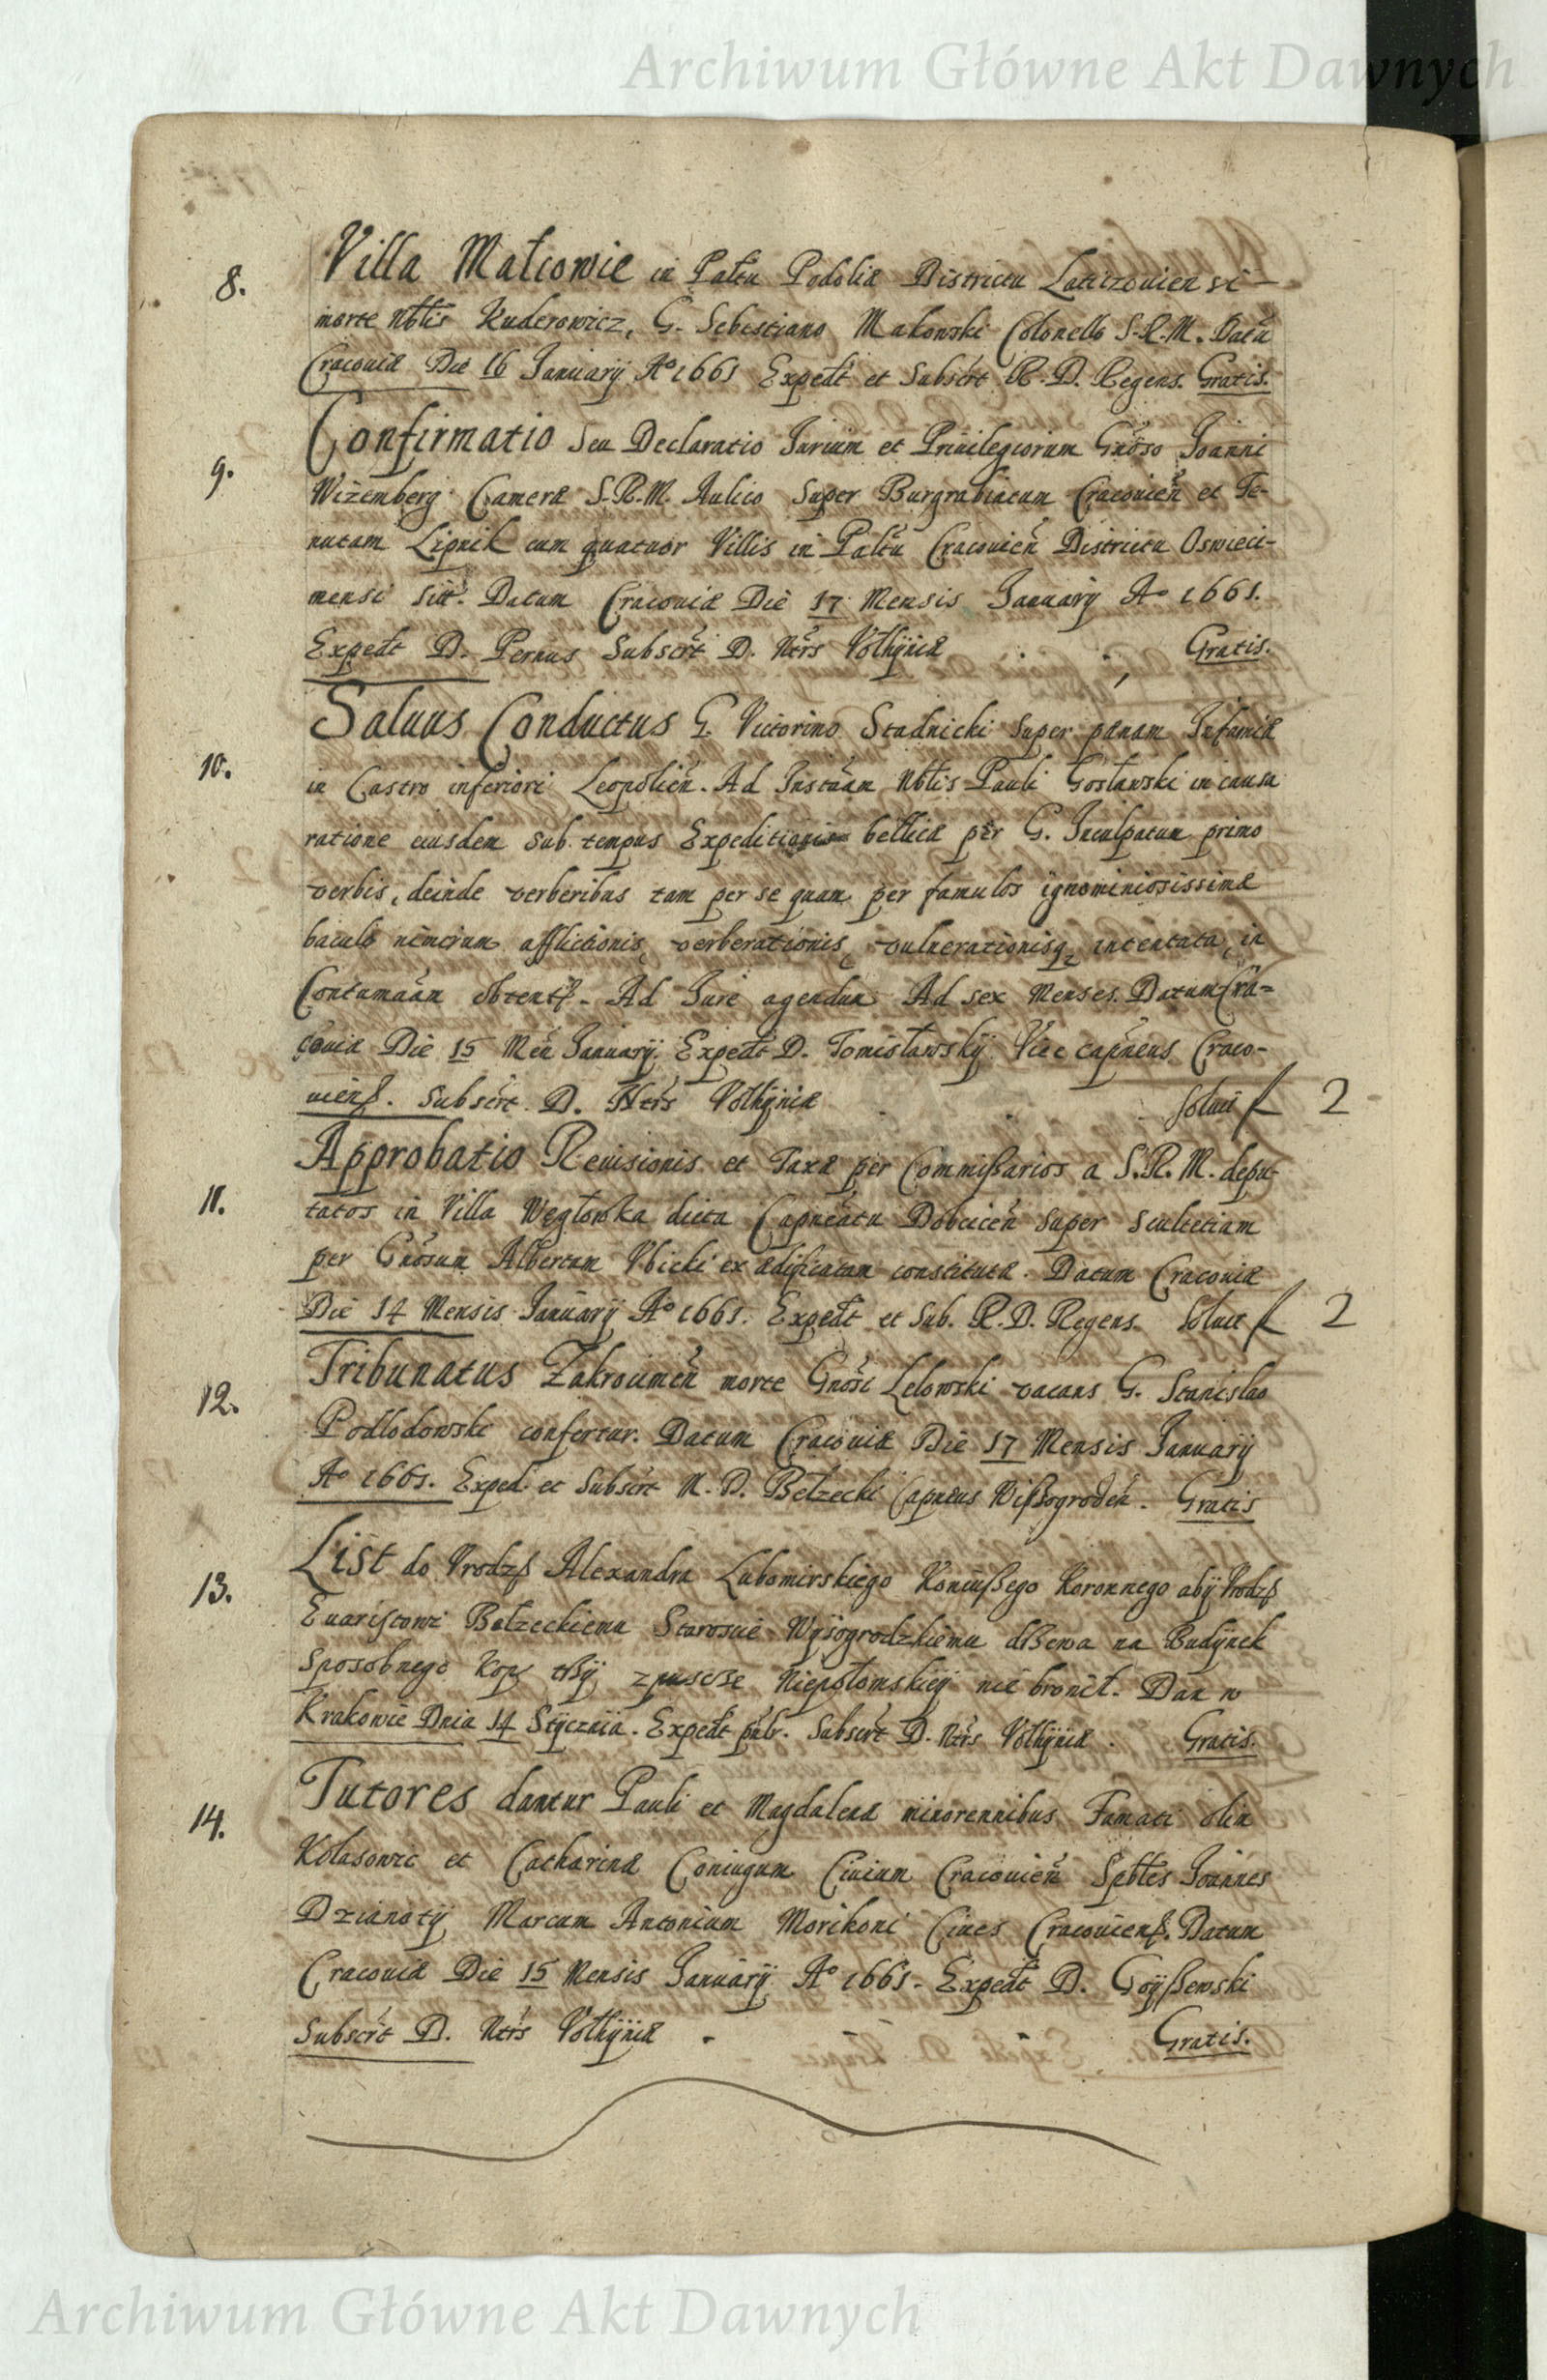 Archiwum Główne Akt Dawnych
8. Villa Małcowie in Pałtu Podoliæ Districtu Laticzouiensi
morte Nbłis Kuderowicz, G. Sebestiano Makowski Colonello S. R. M. Datū
Cracouiæ Die 16 Januarij Aº 1661 Expedt et Subscrt R. D. Regens. Gratis.
9. Confirmatio Seu Declaratio Jurium et Priuilegiorum Gnoso Joanni
Wizemberg Cameræ S. R. M. Aulico Super Burgrabiatum Cracouien̄ et Te-
nutam Lipnik cum quatuor Villis in Pałtu Cracouien̄ Districtu Oswieci-
mensi sitt. Datum Cracouiæ Die 17 Mensis Januarij Aº 1661.
Expedt D. Pernus Subscrt D. Ntrs Vołhyniæ Gratis.
10. Saluus Conductus G. Victorino Stadnicki Super pænam Infamiæ
in Castro inferiori Leopolien̄. Ad Instāan Nbtis Pauli Gosławski in causa
ratione eiusdem sub tempus Expeditionis bellicæ per G. Inculpatum primo
verbis, deinde verberibus tam per se quam per famulos ignominiosissimæ
baculo nimirum afflictionis, verberationis, vulnerationisq3 intentata, in
Contumaān obtentß. Ad Jure agendum Ad sex Menses. Datum Cra=
couiæ Die 15 Men̄ Januarij. Expedt D. Tomisławskij Vice capneus Craco-
uienß. Subscrt D. Ntrs Vołhyniæ Soluit f 2
11. Approbatio Reuisionis et Taxæ per Commißarios a S. R. M. depu-
tatos in Villa Węgłowka dicta Capneātu Dobcicen̄ super Scultetiam
per Gnosum Albertum Vbicki ex ædificatam constitutæ. Datum Cracouiæ
Die 14 Mensis Januarij Aº 1661. Expedt et Sub. R. D. Regens. Soluit f 2
12. Tribunatus Zakroumen̄ morte Gnosi Lelowski vacans G. Stanislao
Podlodowski confertur. Datum Cracouiæ Die 17 Mensis Januarij
Aº 1661. Exped. et Subscrt M. D. Bełzecki Capneus Wißogroden̄. Gratis
13. List do Vrodzß Alexandra Lubomirskiego Koniußego Koronnego abÿ Vrodzß
Euaristowi Bełzeckiemu Staroscie Wysogrodzkiemu dßewa na Budÿnek
Sposobnego Kop tßÿ zpuscße Niepołomskieÿ nie bronił. Dan w
Krakowie Dnia 14 Stÿcznia. Expedt pulr. Subscrt D. Ntrs Vołhyniæ. Gratis.
14. Tutores dantur Pauli et Magdalenæ minorennibus Famati olim
Kołasowic et Catharinæ Coniugum Ciuium Cracouien̄ Spbtes Joannes
Dzianotÿ Marcum Antonium Morikoni Ciues Cracouienß. Datum
Cracouiæ Die 15 Mensis Januarij Aº 1661. Expedt D. Goÿßewski
Subscrt D. Ntrs Vołhyniæ Gratis.
Archiwum Główne Akt Dawnych